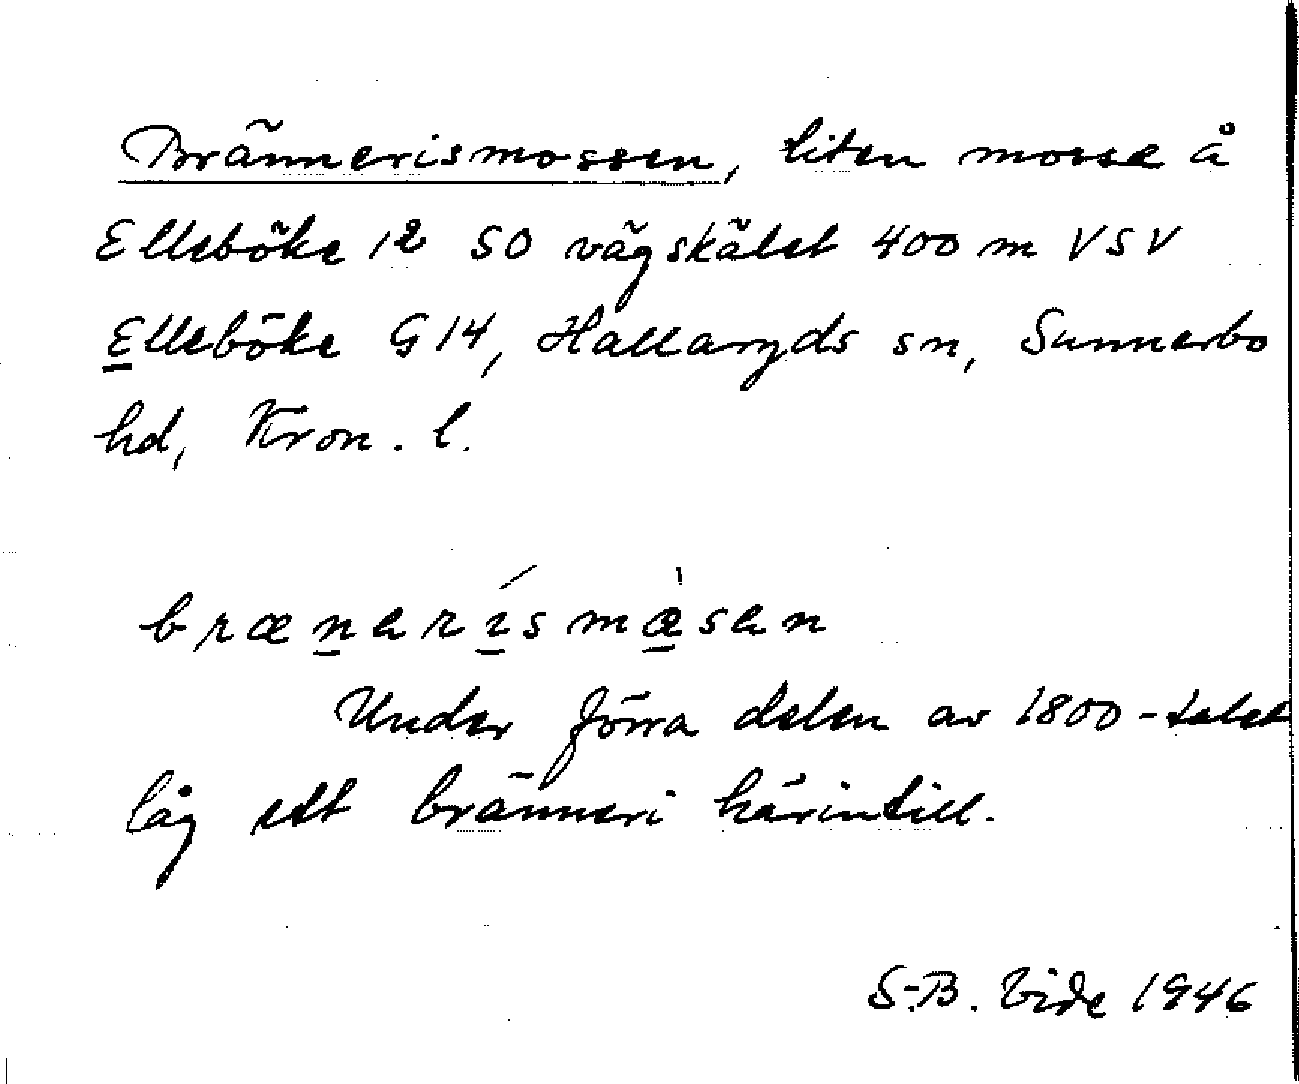 Brännerismossen, liten mosse å
Elleböke 12 SO vägskälet 400 m VSV
Elleböke G 14, Hallaryds sn, Sunnerbo
hd, Kron. l.
brænerísmæ̀sen
Under förra delen av 1800-talet
låg ett bränneri härintill.
S-B. Vide 1946